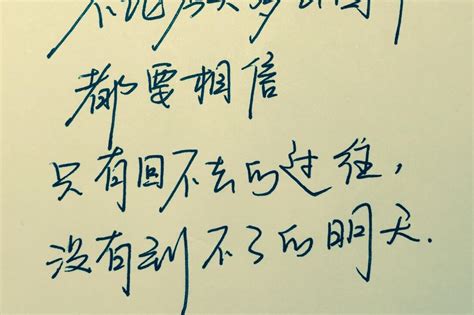 不论
都要相信
只有回不去的过往，
没有到不了的明天.